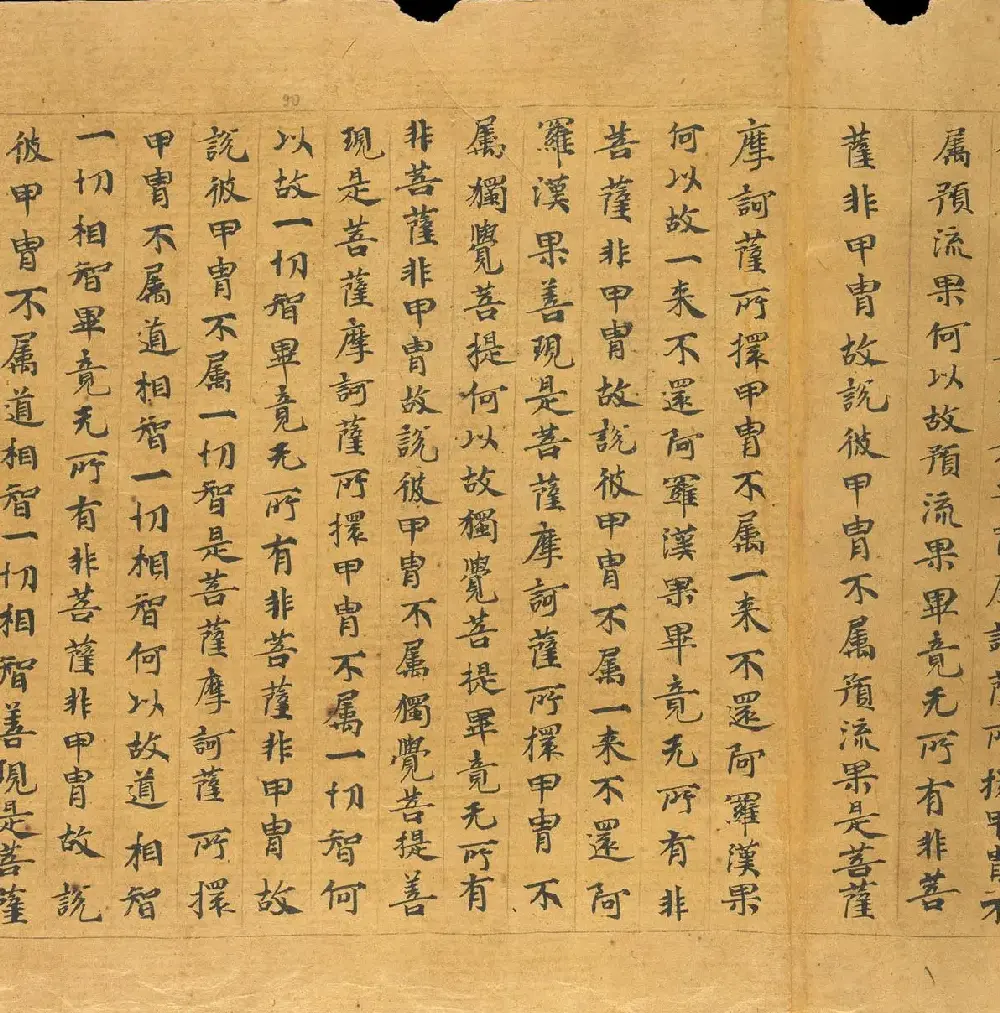 訶薩所擐甲冑不
属預流果何以故預流果畢竟无所有非菩
薩非甲冑故説彼甲冑不属預流果是菩薩
摩訶薩所擐甲冑不属一来不還阿羅漢果
何以故一来不還阿羅漢果畢竟无所有非
菩薩非甲冑故説彼甲冑不属一来不還阿
羅漢果善現是菩薩摩訶薩所擐甲冑不
属獨覺菩提何以故獨覺菩提畢竟无所有
非菩薩非甲冑故説彼甲冑不属獨覺菩提善
現是菩薩摩訶薩所擐甲冑不属一切智何
以故一切智畢竟无所有非菩薩非甲冑故
説彼甲冑不属一切智是菩薩摩訶薩所擐
甲冑不属道相智一切相智何以故道相智
一切相智畢竟无所有非菩薩非甲冑故説
彼甲冑不属道相智一切相智善現是菩薩